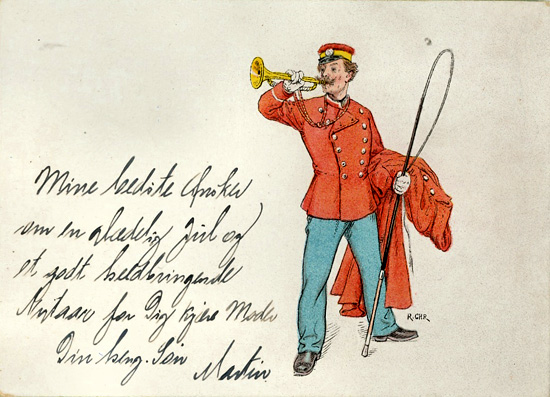 Mine bedste Ønsker
om en glædelig Jul og
et godt heldbringende
Nytaar for Dig kjære Moder
Din heng. Søn
Martin
R. CHR.